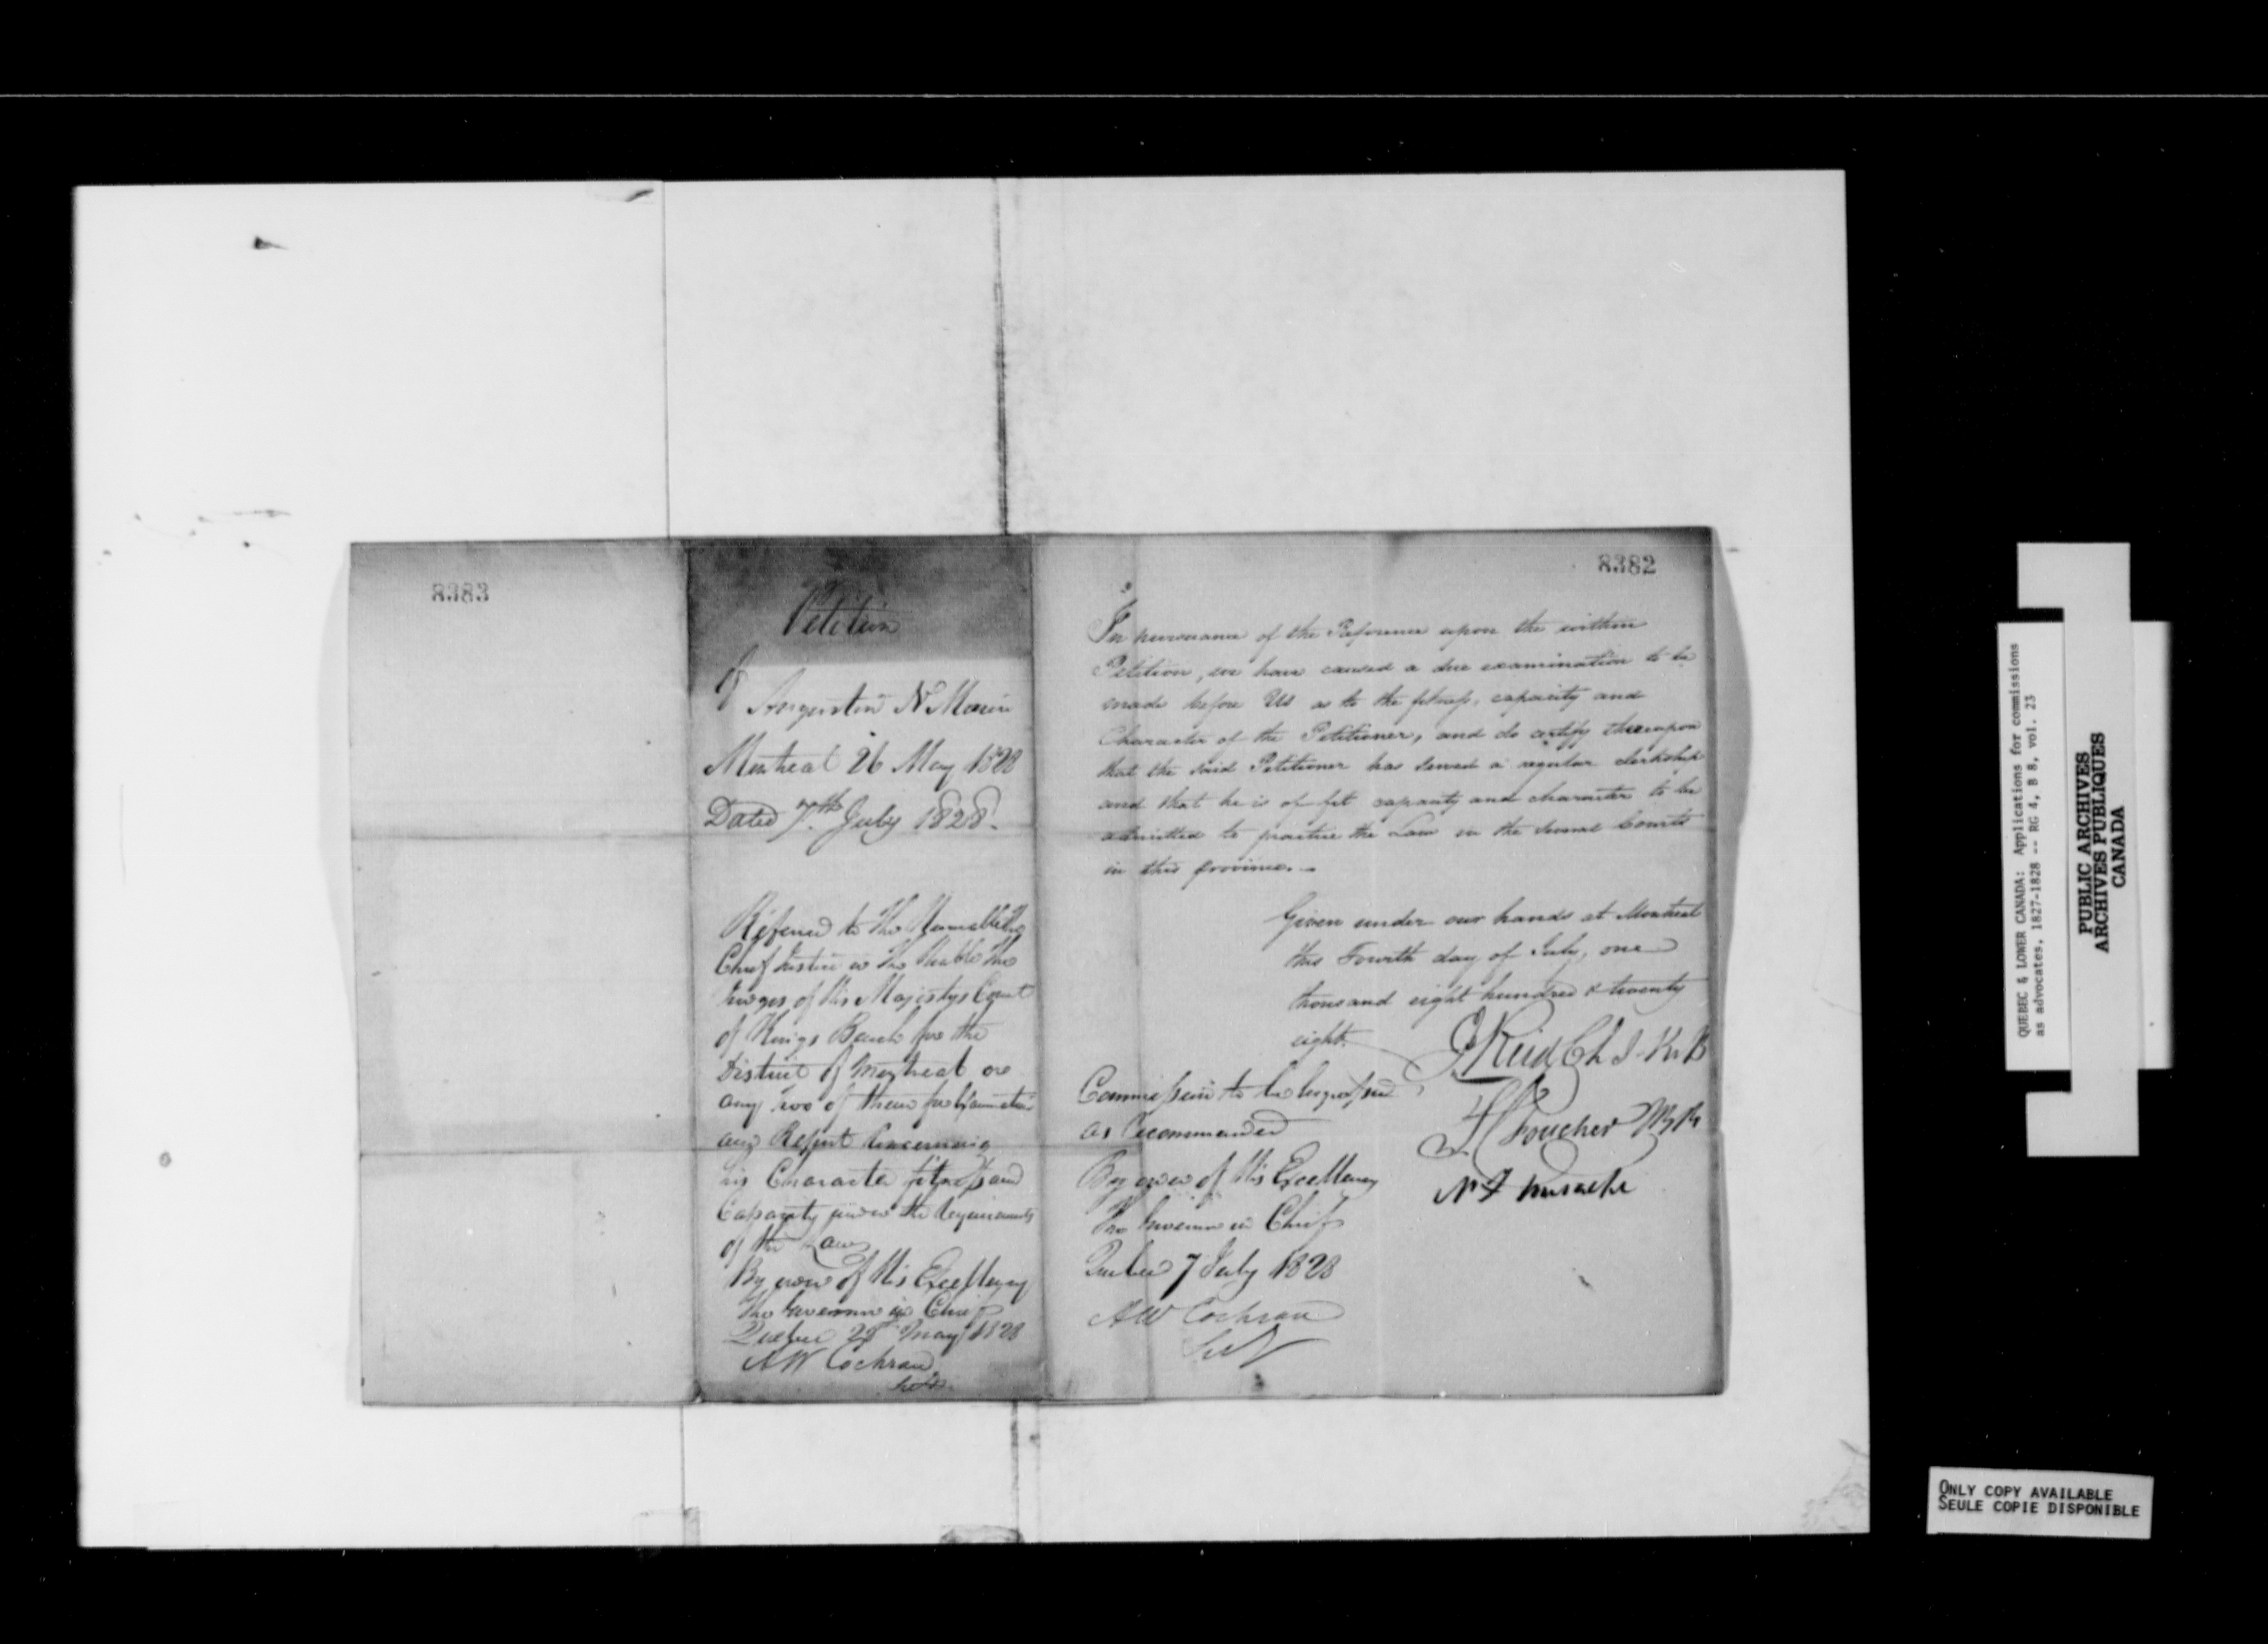 8383
Petition
Of
Augustin N Morin
Montreal 26 May 1828
Dated 7th July 1828.
Refered to the Honorable the
Chief Justice & the Honble the
Judges of His Majestys Court
of Kings Bench for the
District of Montreal or
any Two of them for Examination
and Report concerning
his Character fitness and
Capacity under the requirements
of the Law
By order of His Excellency
The Governor in Chief
Quebec May 1828
AW Cochran
Secy
8382
In pursuance of the Reference upon the within
Petition, we have caused a due examination to be
made before Us as to the fitness, capacity and
Character of the Petitioner, and do certify thereupon
that the said Petitioner has served a regular clerkship
and that he is of fit capacity and character to be
admitted to practice the Law in the several Courts
in this province.
Given under our hands at Montreal
this Fourth day of July, one
thousand eight hundred & twenty
eight.
J Reid Ch J. K. B
L C Foucher
Commission to be engrossed
as recommended
By order of His Excellency
The Governor in Chief
Quebec 7 July 1828
AW Cochran
Secy
QUEBEC & LOWER CANADA: Applications for commissions
as advocates, 1827-1828 -- RG 4, B 8, vol. 23
PUBLIC ARCHIVES
ARCHIVES PUBLIQUES
CANADA
ONLY COPY AVAILABLE
SEULE COPIE DISPONIBLE